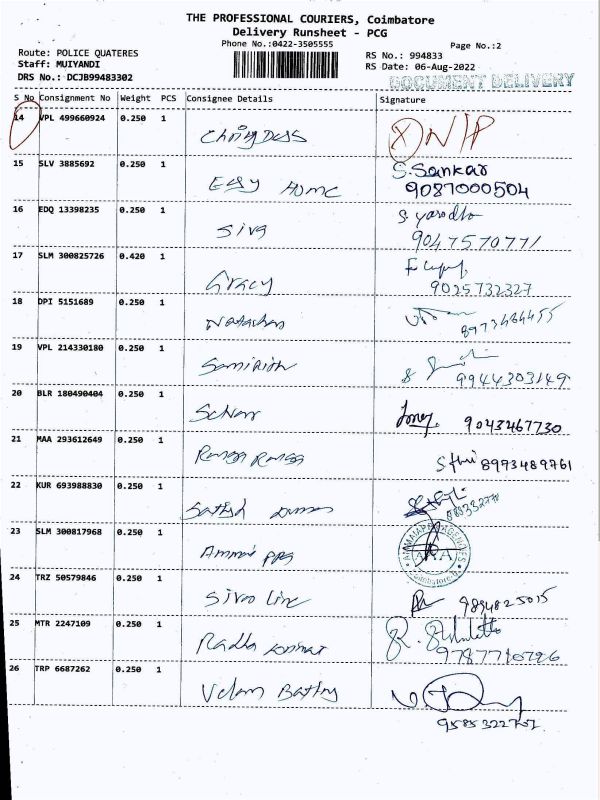 THE PROFESSIONAL COURIERS, Coimbatore
Delivery Runsheet - PCG
Phone No.:0422-3505555
Page No.:2
Route: POLICE QUATERES
RS No.: 994833
Staff: MUIYANDI
RS Date: 06-Aug-2022
DRS No.: DCJB99483302
DOCUMENT DELIVERY
S No Consignment No Weight PCS Consignee Details Signature
14 VPL 499660924 0.250 1
15 SLV 3885692 0.250 1 Easy Home S.Sankar
9087000504
16 EDQ 13398235 0.250 1 Siva
9047570771
17 SLM 300825726 0.420 1 Gracy
9025732327
18 DPI 5151689 0.250 1
8973464455
19 VPL 214330180 0.250 1
9944303149
20 BLR 180490404 0.250 1 9043467730
21 MAA 293612649 0.250 1 Ranga Ranga 8973489761
22 KUR 693988830 0.250 1 Satish
23 SLM 300817968 0.250 1
24 TRZ 50579846 0.250 1 9894825015
25 MTR 2247109 0.250 1 Radha
9787710726
26 TRP 6687262 0.250 1 Velan Battry